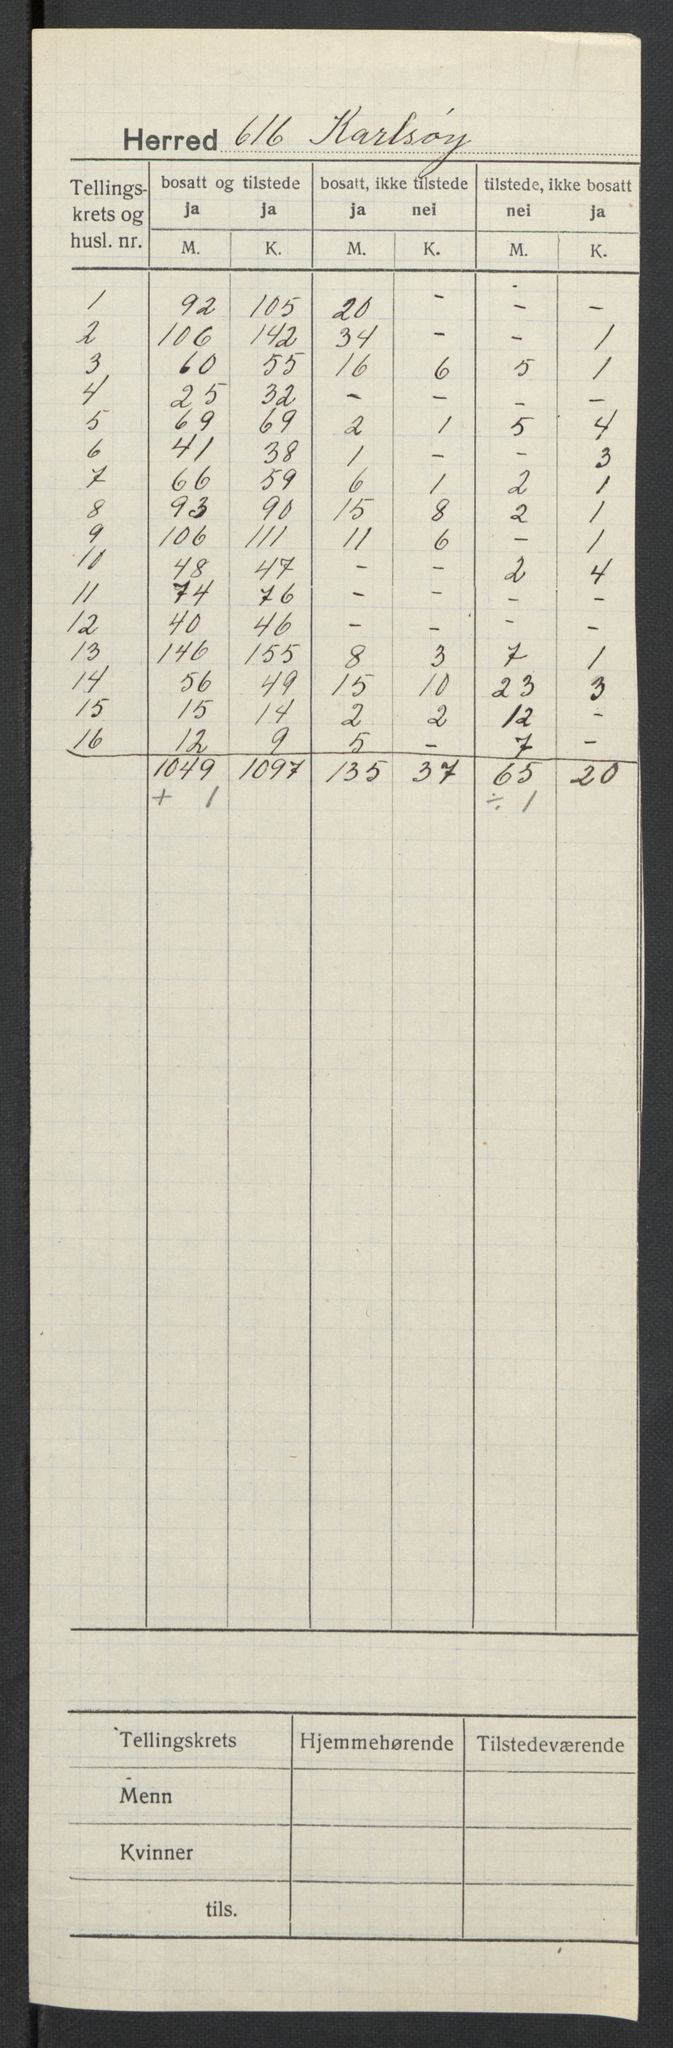 Herred 616 Karlsøy
Tellings-krets og husl. nr. | bosatt og tilstede | bosatt, ikke tilstede | tilstede, ikke bosatt
ja ja ja nei nei ja
M. K. M. K. M. K.
1 92 105 20 - - -
2 106 142 34 - - 1
3 60 55 16 6 5 1
4 25 32 - - - -
5 69 69 2 1 5 4
6 41 38 1 - - 3
7 66 59 6 1 2 1
8 93 90 15 8 2 1
9 106 111 11 6 - 1
10 48 47 - - 2 4
11 74 76 - - - -
12 40 46 - - - -
13 146 155 8 3 7 1
14 56 49 15 10 23 3
15 15 14 2 2 12 -
16 12 9 5 - 7 -
1049 1097 135 37 65 20
+ 1 ÷ 1
Tellingskrets Hjemmehørende Tilstedeværende
Menn
Kvinner
tils.